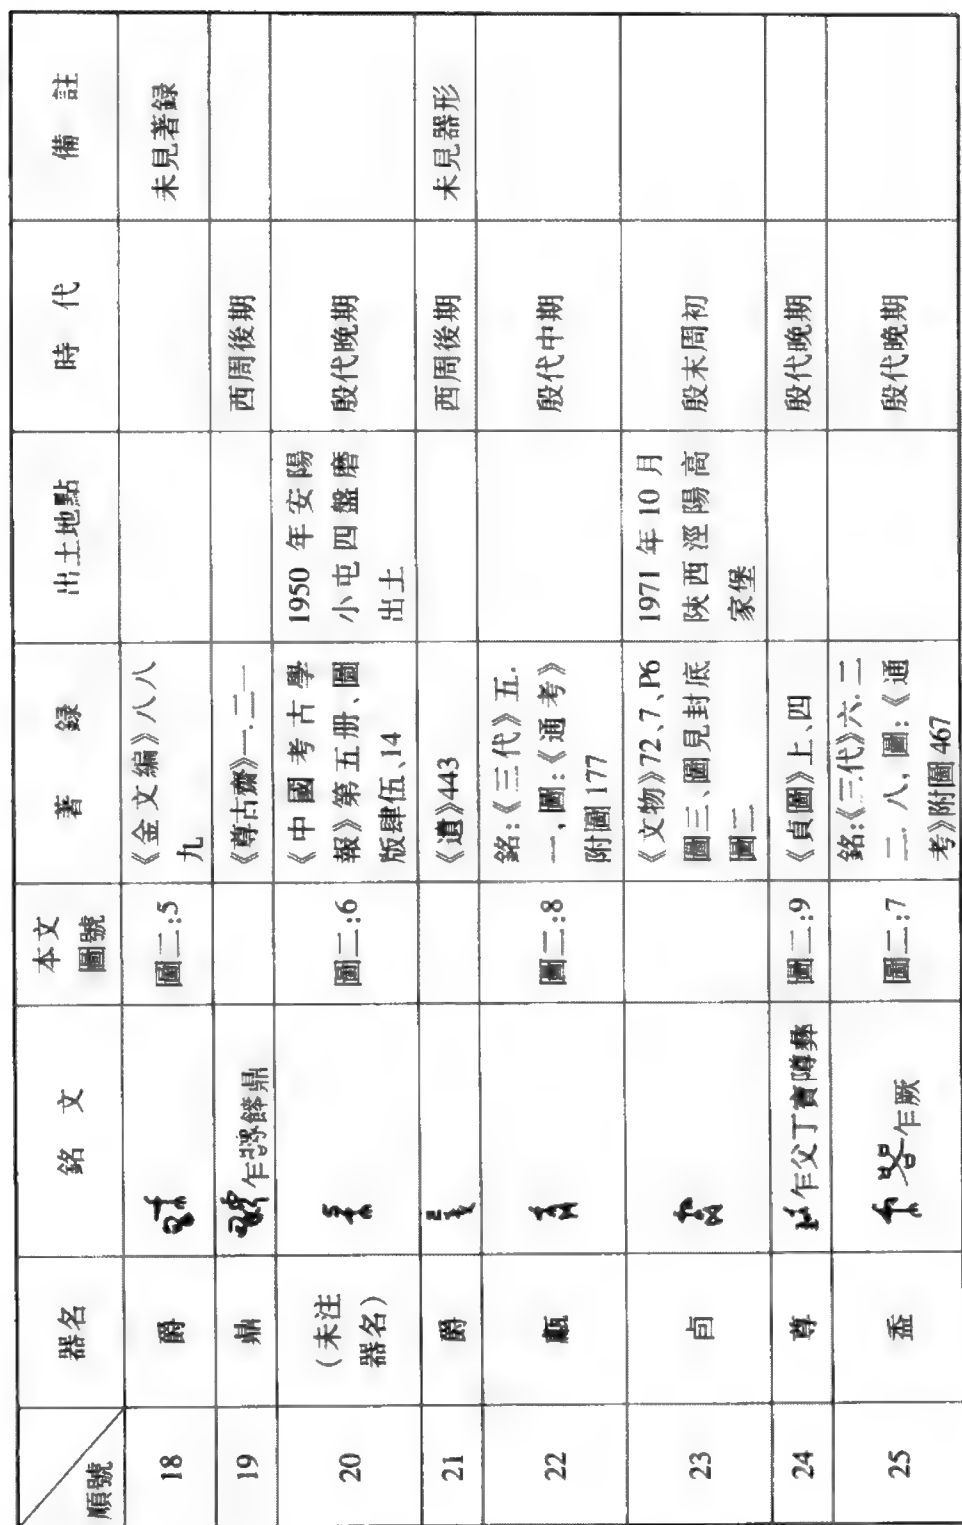 順號 器名 銘文 本文圖號 著錄 出土地點 時代 備註
18 爵 圖二:5 《金文編》八八九 未見著録
19 鼎 乍餴鼎 《尊古齋》一.二一 西周後期
20 (未注器名) 圖二:6 《中國考古學報》第五册、圖版肆伍、14 1950年安陽小屯四盤磨出土 殷代晚期
21 爵 《遺》443 西周後期 未見器形
22 甗 圖二:8 銘:《三代》五.一,圖:《通考》附圖177 殷代中期
23 卣 《文物》72、7、P6圖三、圖見封底圖二 1971年10月陝西涇陽高家堡 殷末周初
24 尊 乍父丁寶䵼彝 圖二:9 《貞圖》上、四 殷代晚期
25 盉 乍厥 圖二:7 銘:《三代》六.二二.八,圖:《通考》附圖467 殷代晚期